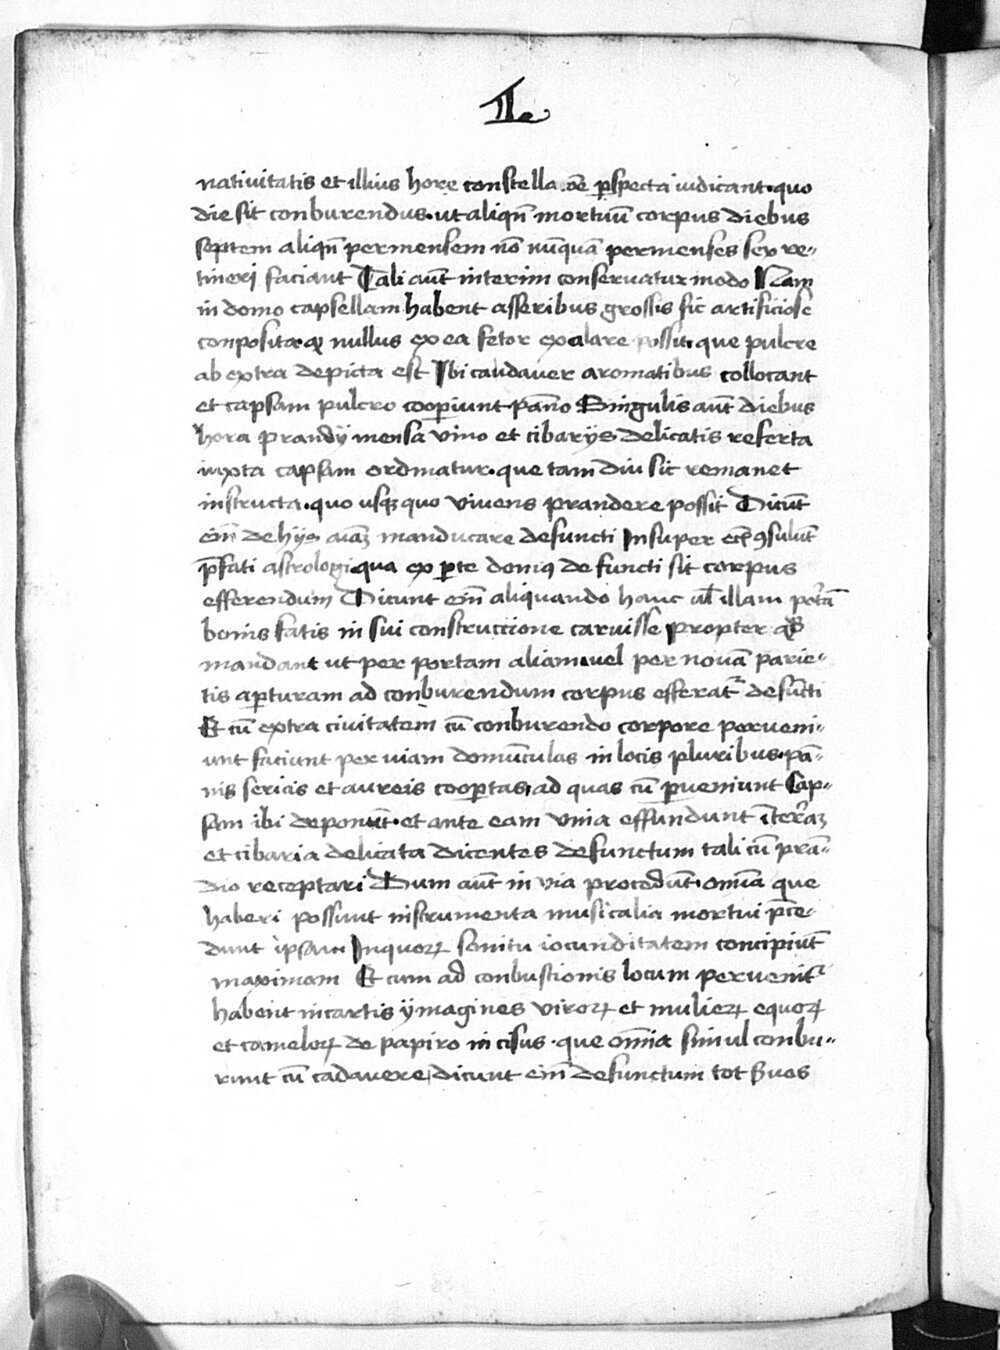 II
nativitatis et illius hore constellac̄oe p̲specta iudicant · quo
die sit conburendus · ut aliqn̄ mortuū corpus diebus
septem aliqn̄ permensem nō nūquā permenses sex re-
tineri faciant Tali aūt interim conservatur modo Nam
in domo capsellam habent asseribus grossis sic artificiose
conposita ꝙ nullus ex ea fetor exalare possit · que pulcre
ab extra depicta est Ibi caudaver aromatibus collocant
et capsam pulcro cooꝑiunt pāno Singulis aūt diebus
hora prandij mensā vino et cibarijs delicatis referta
iuxta capsam ordinatur · que tam diu sic remanet
instructa · quo usqꝫ quo vivens prandere possit Dicūt
eīn de hijs aīaꝫ manducare defuncti Insuper ecīā ꝯsulūt
p̄fati astrologi qua ex ꝑte domꝰ defuncti sit corpus
efferendum Dicunt eīn aliquando hanc ul̄ illam portā
bonis fatis in sui construccione caruisse propter qđ
mandant ut per portam aliam vel per novā parie-
tis aꝑturam ad conburendum corpus efferat᷑ defūcti
Et cū extra civitatem cū conburendo corpore perveni-
unt faciunt per viam domūculas in locis pluribus · pā-
nis sericis et aureis cooꝑtas, ad quas cū ꝑveniunt Cap-
sam ibi deponūt · et ante eam vina effundunt ī terraꝫ
et cibaria delicata dicentes defunctum tali cū prā-
dio receptari Dum aūt in via procedūt · omīa que
haberi possunt instrumenta musicalia mortui p̄ce-
dunt ipsam Inquoꝝ sonitu iocunditatem concipiūt
maximam Et cum ad conbustionis locum pervenit᷑
habent incartis ymagines viroꝝ et mulieꝝ equoꝝ
et cameloꝝ de papiro incisus · que om̄ia simul conbu-
runt cū cadavere, dicunt eīn defunctum tot s̄uos